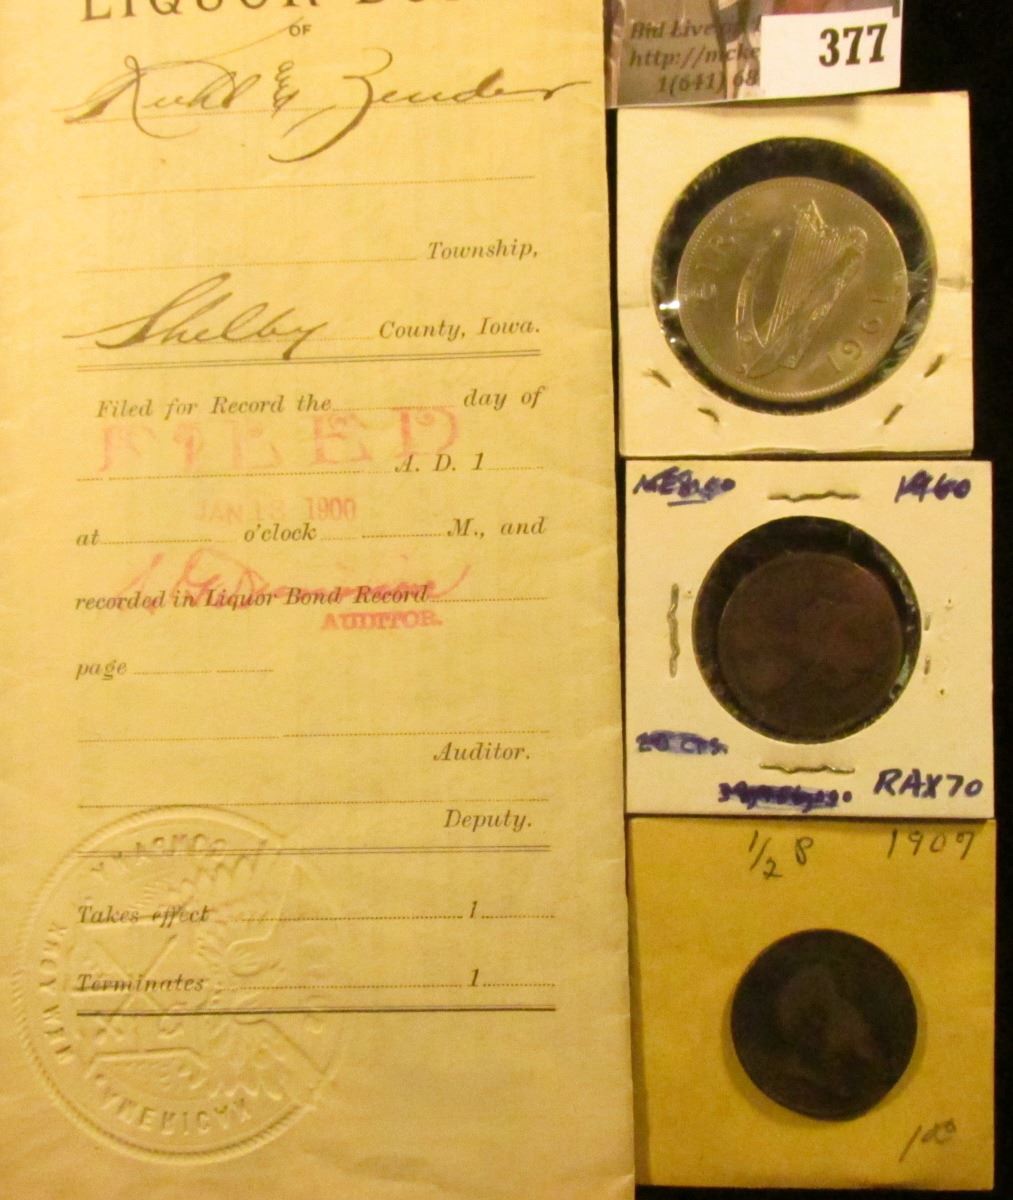 LIQUOR
OF
& Zender
Township,
Shelby County, Iowa.
Filed for Record the day of
FILED
A. D. 1
JAN 13 1900
at o'clock M., and
recorded in Liquor Bond Record
AUDITOR.
page
Auditor.
Deputy.
Takes effect 1
Terminates 1
NEW AMERICAN
Bid Live
http://mcke
1(641) 68
377
EIRE
1961
MEXICO 1960
20 CTS.
RAX70
1/2 P 1907
100